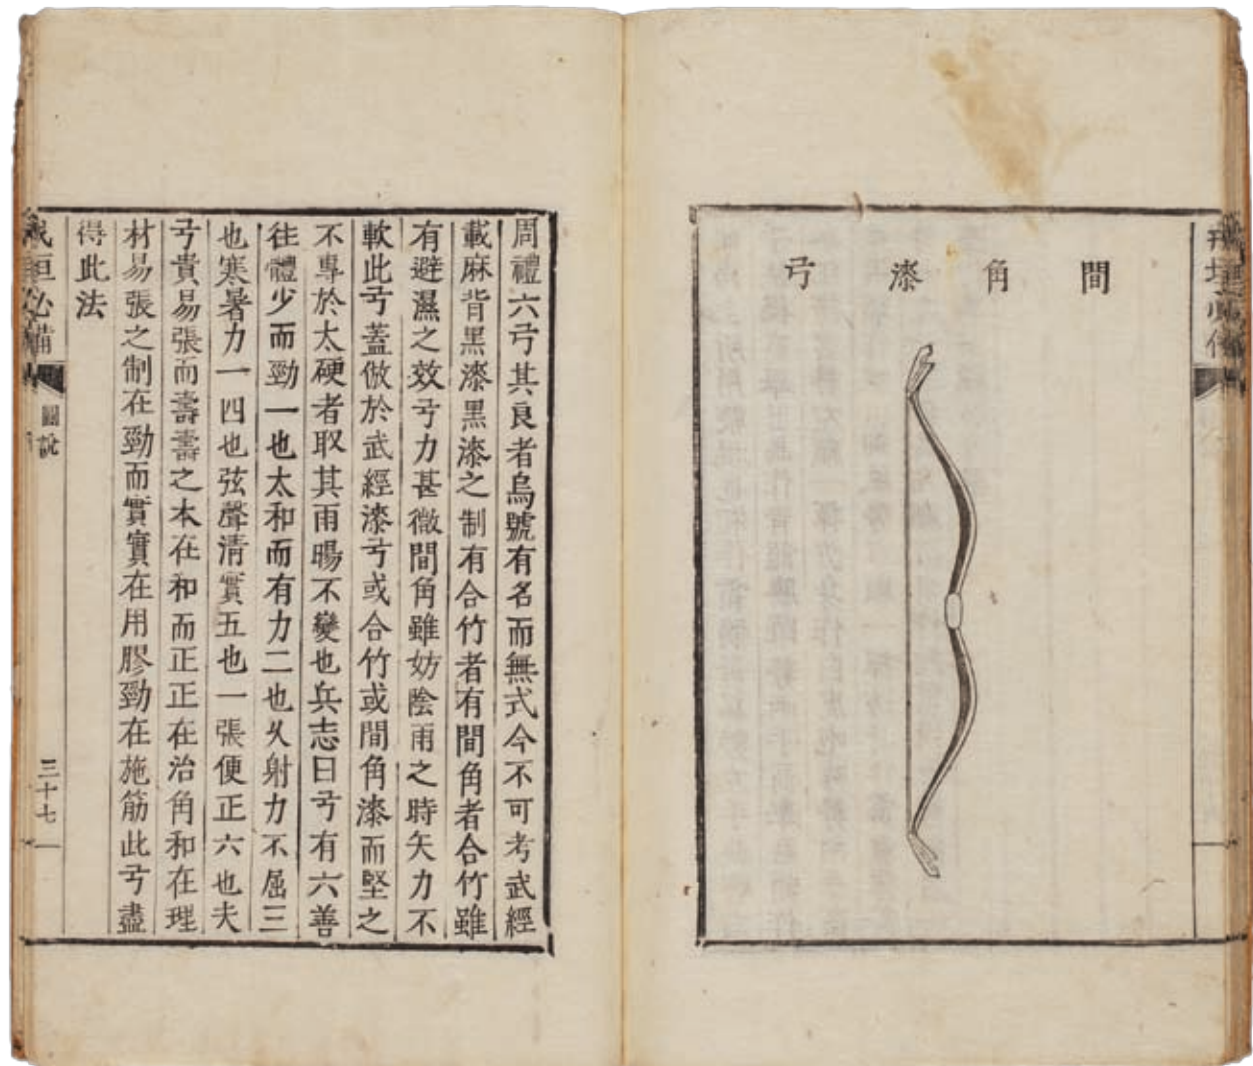 戎垣必備
間角漆弓
周禮六弓其良者烏號有名而無式今不可考武經
載麻背黑漆黑漆之制有合竹者有間角者合竹雖
有避濕之效弓力甚微間角雖妨陰雨之時矢力不
軟此弓蓋倣於武經漆弓或合竹或間角漆而堅之
不專於太硬者取其雨暘不變也兵志曰弓有六善
往體少而勁一也太和而有力二也久射力不屈三
也寒暑力一四也弦聲清實五也一張便正六也夫
弓貴易張而壽壽之本在和而正正在治角和在理
材易張之制在勁而實實在用膠勁在施筋此弓盡
得此法
戎垣必備 圖說 三十七